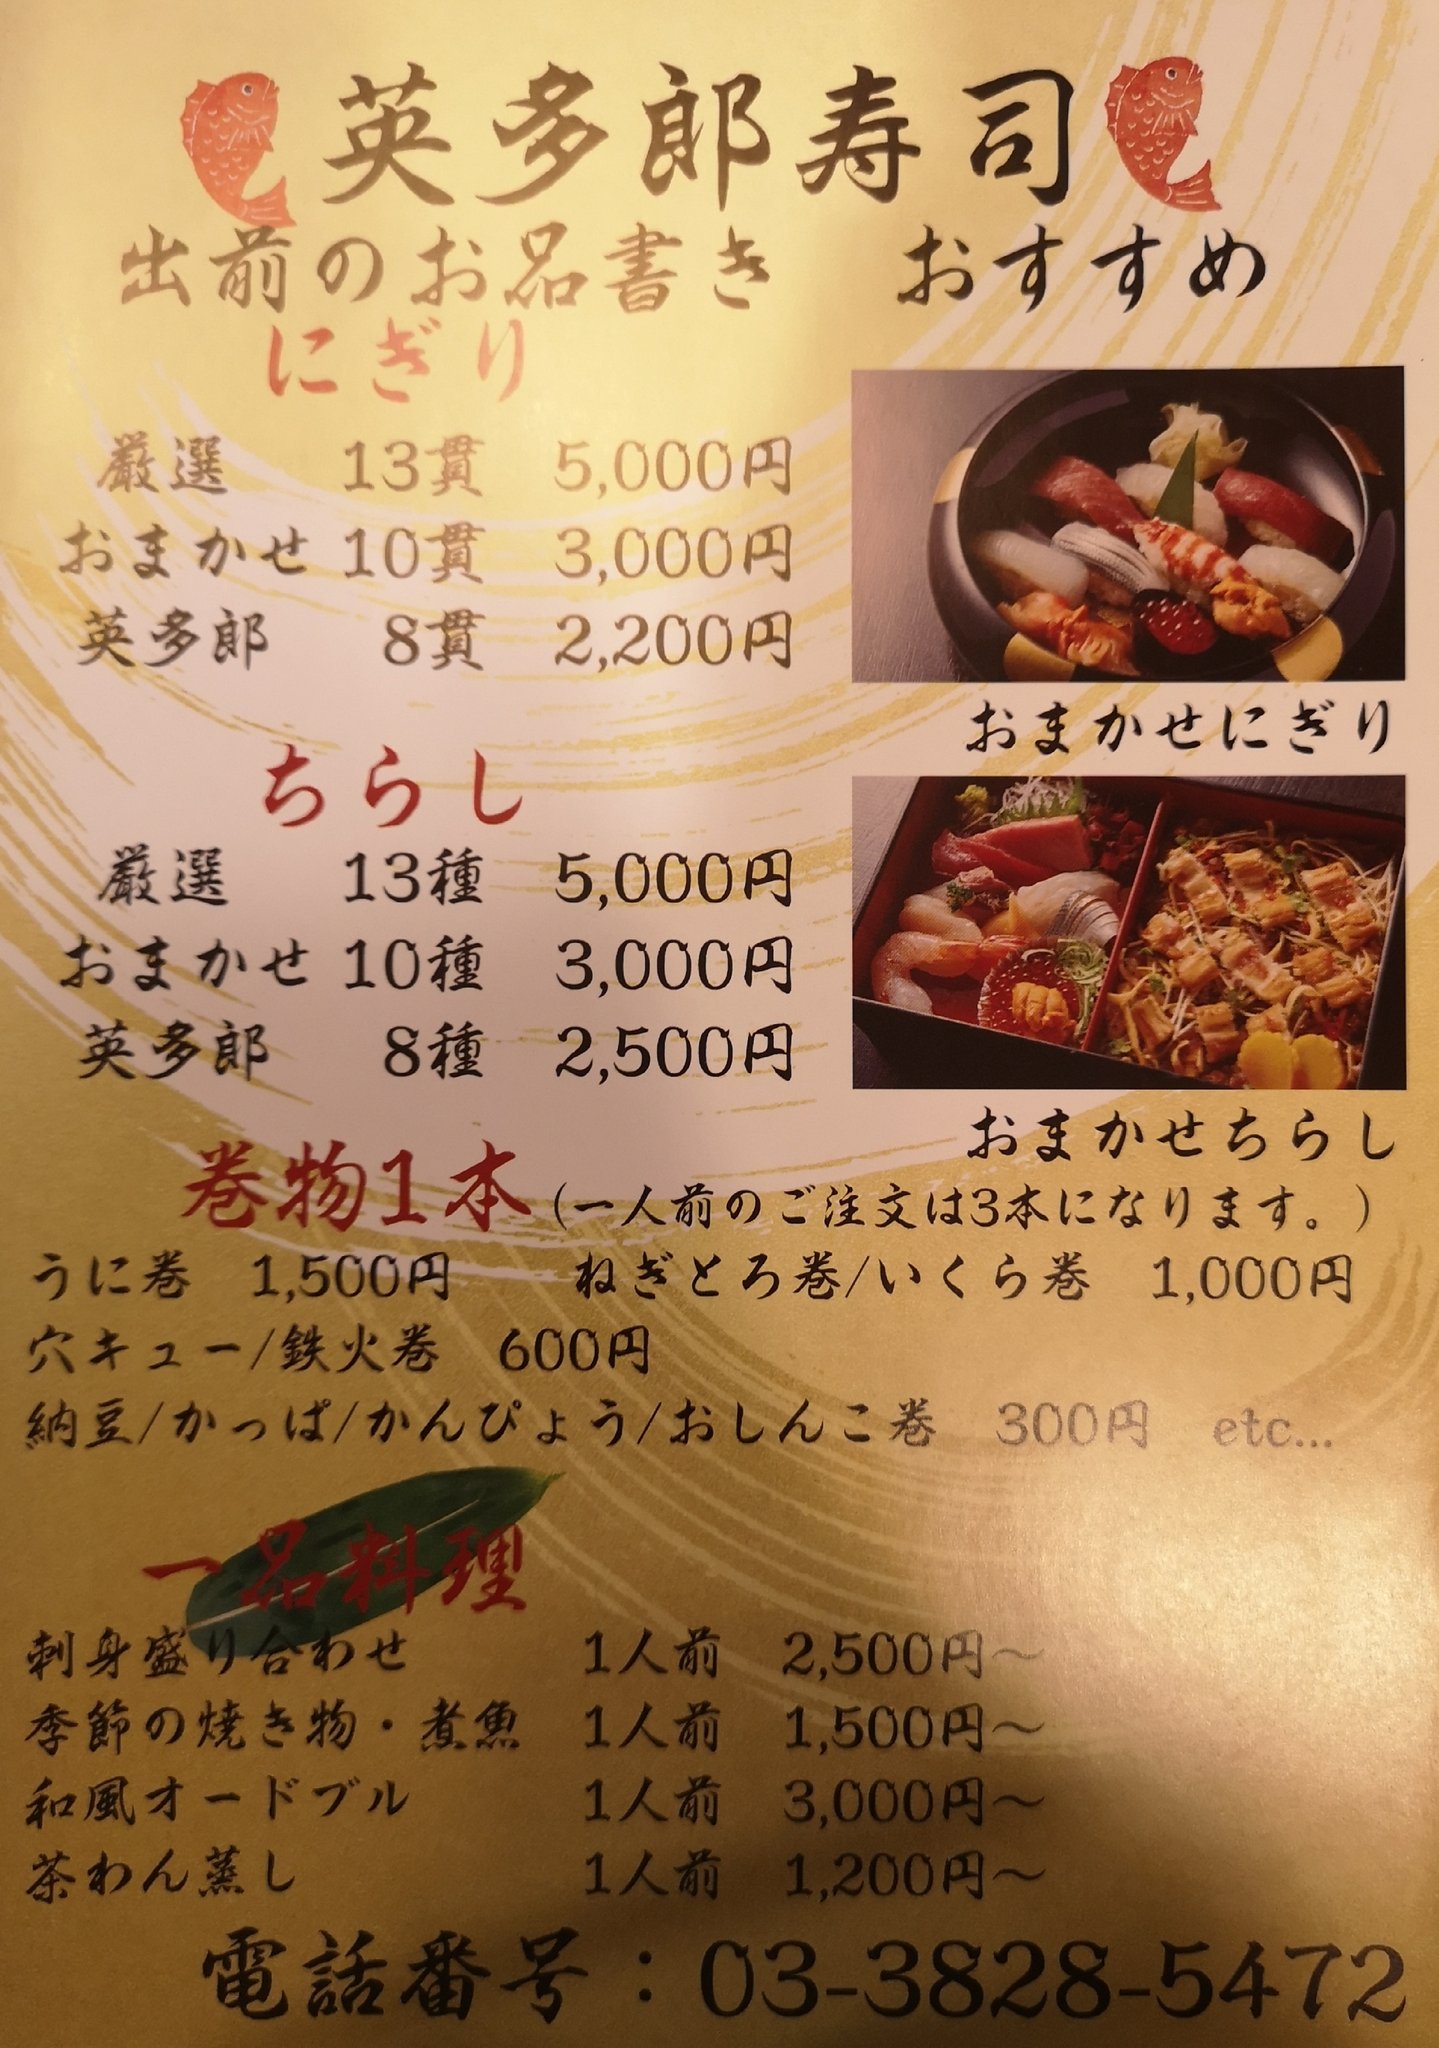 英多郎寿司
出前のお品書き おすすめ
にぎり
厳選 13貫 5,000円
おまかせ 10貫 3,000円
英多郎 8貫 2,200円
おまかせにぎり
ちらし
厳選 13種 5,000円
おまかせ 10種 3,000円
英多郎 8種 2,500円
おまかせちらし
巻物1本(一人前のご注文は3本になります。)
うに巻 1,500円 ねぎとろ巻/いくら巻 1,000円
穴キュー/鉄火巻 600円
納豆/かっぱ/かんぴょう/おしんこ巻 300円 etc...
一品料理
刺身盛り合わせ 1人前 2,500円～
季節の焼き物・煮魚 1人前 1,500円～
和風オードブル 1人前 3,000円～
茶わん蒸し 1人前 1,200円～
電話番号：03-3828-5472